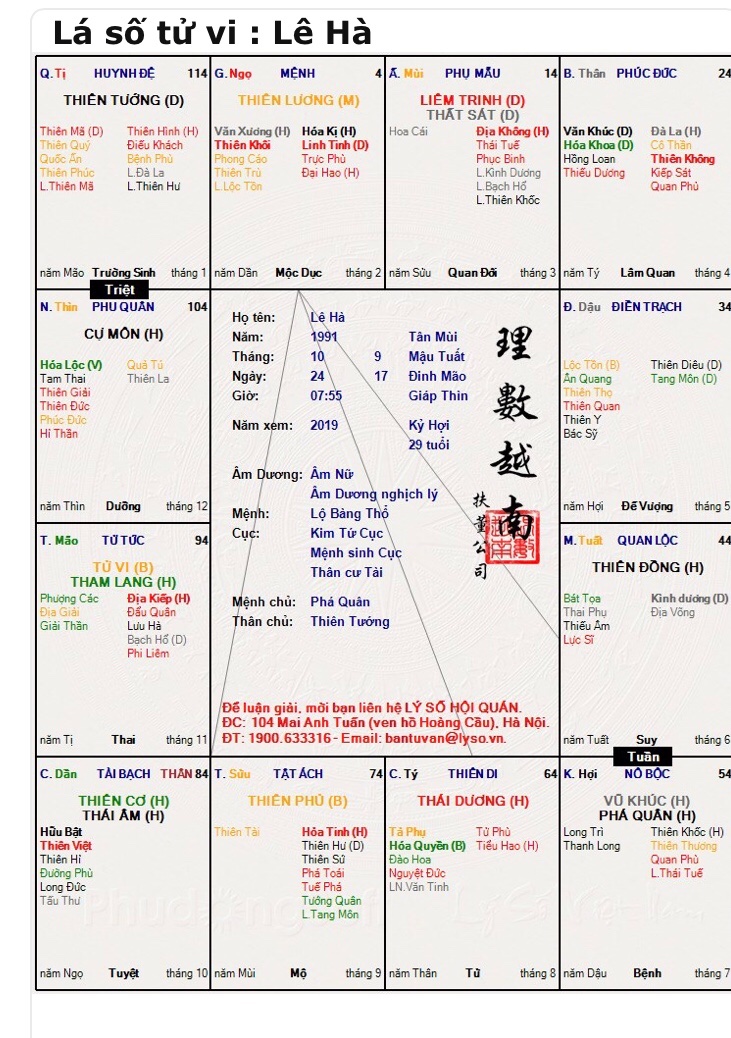 Lá số tử vi : Lê Hà
Q.Tị HUYNH ĐỆ 114
THIÊN TƯỚNG (D)
Thiên Mã (D) Thiên Hình (H)
Thiên Quý Điếu Khách
Quốc Ấn Bệnh Phù
Thiên Phúc L.Đà La
L.Thiên Mã L.Thiên Hư
năm Mão Trường Sinh tháng 1
G.Ngọ MỆNH 4
THIÊN LƯƠNG (M)
Văn Xương (H) Hóa Kị (H)
Thiên Khôi Linh Tinh (D)
Phong Cáo Trực Phù
Thiên Trù Đại Hao (H)
L.Lộc Tồn
năm Dần Mộc Dục tháng 2
Ấ. Mùi PHỤ MẪU 14
LIÊM TRINH (D)
THẤT SÁT (D)
Hoa Cái Địa Không (H)
Thái Tuế
Phục Binh
L.Kình Dương
L.Bạch Hổ
L.Thiên Khốc
năm Sửu Quan Đới tháng 3
B. Thân PHÚC ĐỨC 24
Văn Khúc (D) Đà La (H)
Hóa Khoa (D) Cô Thần
Hồng Loan Thiên Không
Thiếu Dương Kiếp Sát
Quan Phủ
năm Tý Lâm Quan tháng 4
Triệt
N. Thìn PHU QUÂN 104
CỰ MÔN (H)
Hóa Lộc (V) Quả Tú
Tam Thai Thiên La
Thiên Giải
Thiên Đức
Phúc Đức
Hỉ Thần
năm Thìn Dưỡng tháng 12
Họ tên: Lê Hà
Năm: 1991 Tân Mùi
Tháng: 10 9 Mậu Tuất
Ngày: 24 17 Đinh Mão
Giờ: 07:55 Giáp Thìn
Năm xem: 2019 Kỷ Hợi
29 tuổi
Âm Dương: Âm Nữ
Âm Dương nghịch lý
Mệnh: Lộ Bàng Thổ
Cục: Kim Tứ Cục
Mệnh sinh Cục
Thân cư Tài
Mệnh chủ: Phá Quân
Thân chủ: Thiên Tướng
理數越南
扶董公司
Để luận giải, mời bạn liên hệ LÝ SỐ HỘI QUÁN.
ĐC: 104 Mai Anh Tuấn (ven hồ Hoàng Cầu), Hà Nội.
ĐT: 1900.633316 - Email: bantuvan@lyso.vn.
Đ. Dậu ĐIỀN TRẠCH 34
Lộc Tồn (B) Thiên Diêu (D)
Ân Quang Tang Môn (D)
Thiên Thọ
Thiên Quan
Thiên Y
Bác Sỹ
năm Hợi Đế Vượng tháng 5
T. Mão TỬ TỨC 94
TỬ VI (B)
THAM LANG (H)
Phượng Các Địa Kiếp (H)
Địa Giải Đẩu Quân
Giải Thần Lưu Hà
Bạch Hổ (D)
Phi Liêm
năm Tị Thai tháng 11
M. Tuất QUAN LỘC 44
THIÊN ĐỒNG (H)
Bát Tọa Kình dương (D)
Thai Phụ Địa Võng
Thiếu Âm
Lực Sĩ
năm Tuất Suy tháng 6
Tuần
C. Dần TÀI BẠCH THÂN 84
THIÊN CƠ (H)
THÁI ÂM (H)
Hữu Bật
Thiên Việt
Thiên Hỉ
Đường Phù
Long Đức
Tấu Thư
năm Ngọ Tuyệt tháng 10
T. Sửu TẬT ÁCH 74
THIÊN PHỦ (B)
Thiên Tài Hỏa Tinh (H)
Thiên Hư (D)
Thiên Sứ
Phá Toái
Tuế Phá
Tướng Quân
L.Tang Môn
năm Mùi Mộ tháng 9
C. Tý THIÊN DI 64
THÁI DƯƠNG (H)
Tả Phụ Tử Phù
Hóa Quyền (B) Tiểu Hao (H)
Đào Hoa
Nguyệt Đức
LN.Văn Tinh
năm Thân Tử tháng 8
K. Hợi NÔ BỘC 54
VŨ KHÚC (H)
PHÁ QUÂN (H)
Long Trì Thiên Khốc (H)
Thanh Long Thiên Thương
Quan Phù
L.Thái Tuế
năm Dậu Bệnh tháng 7